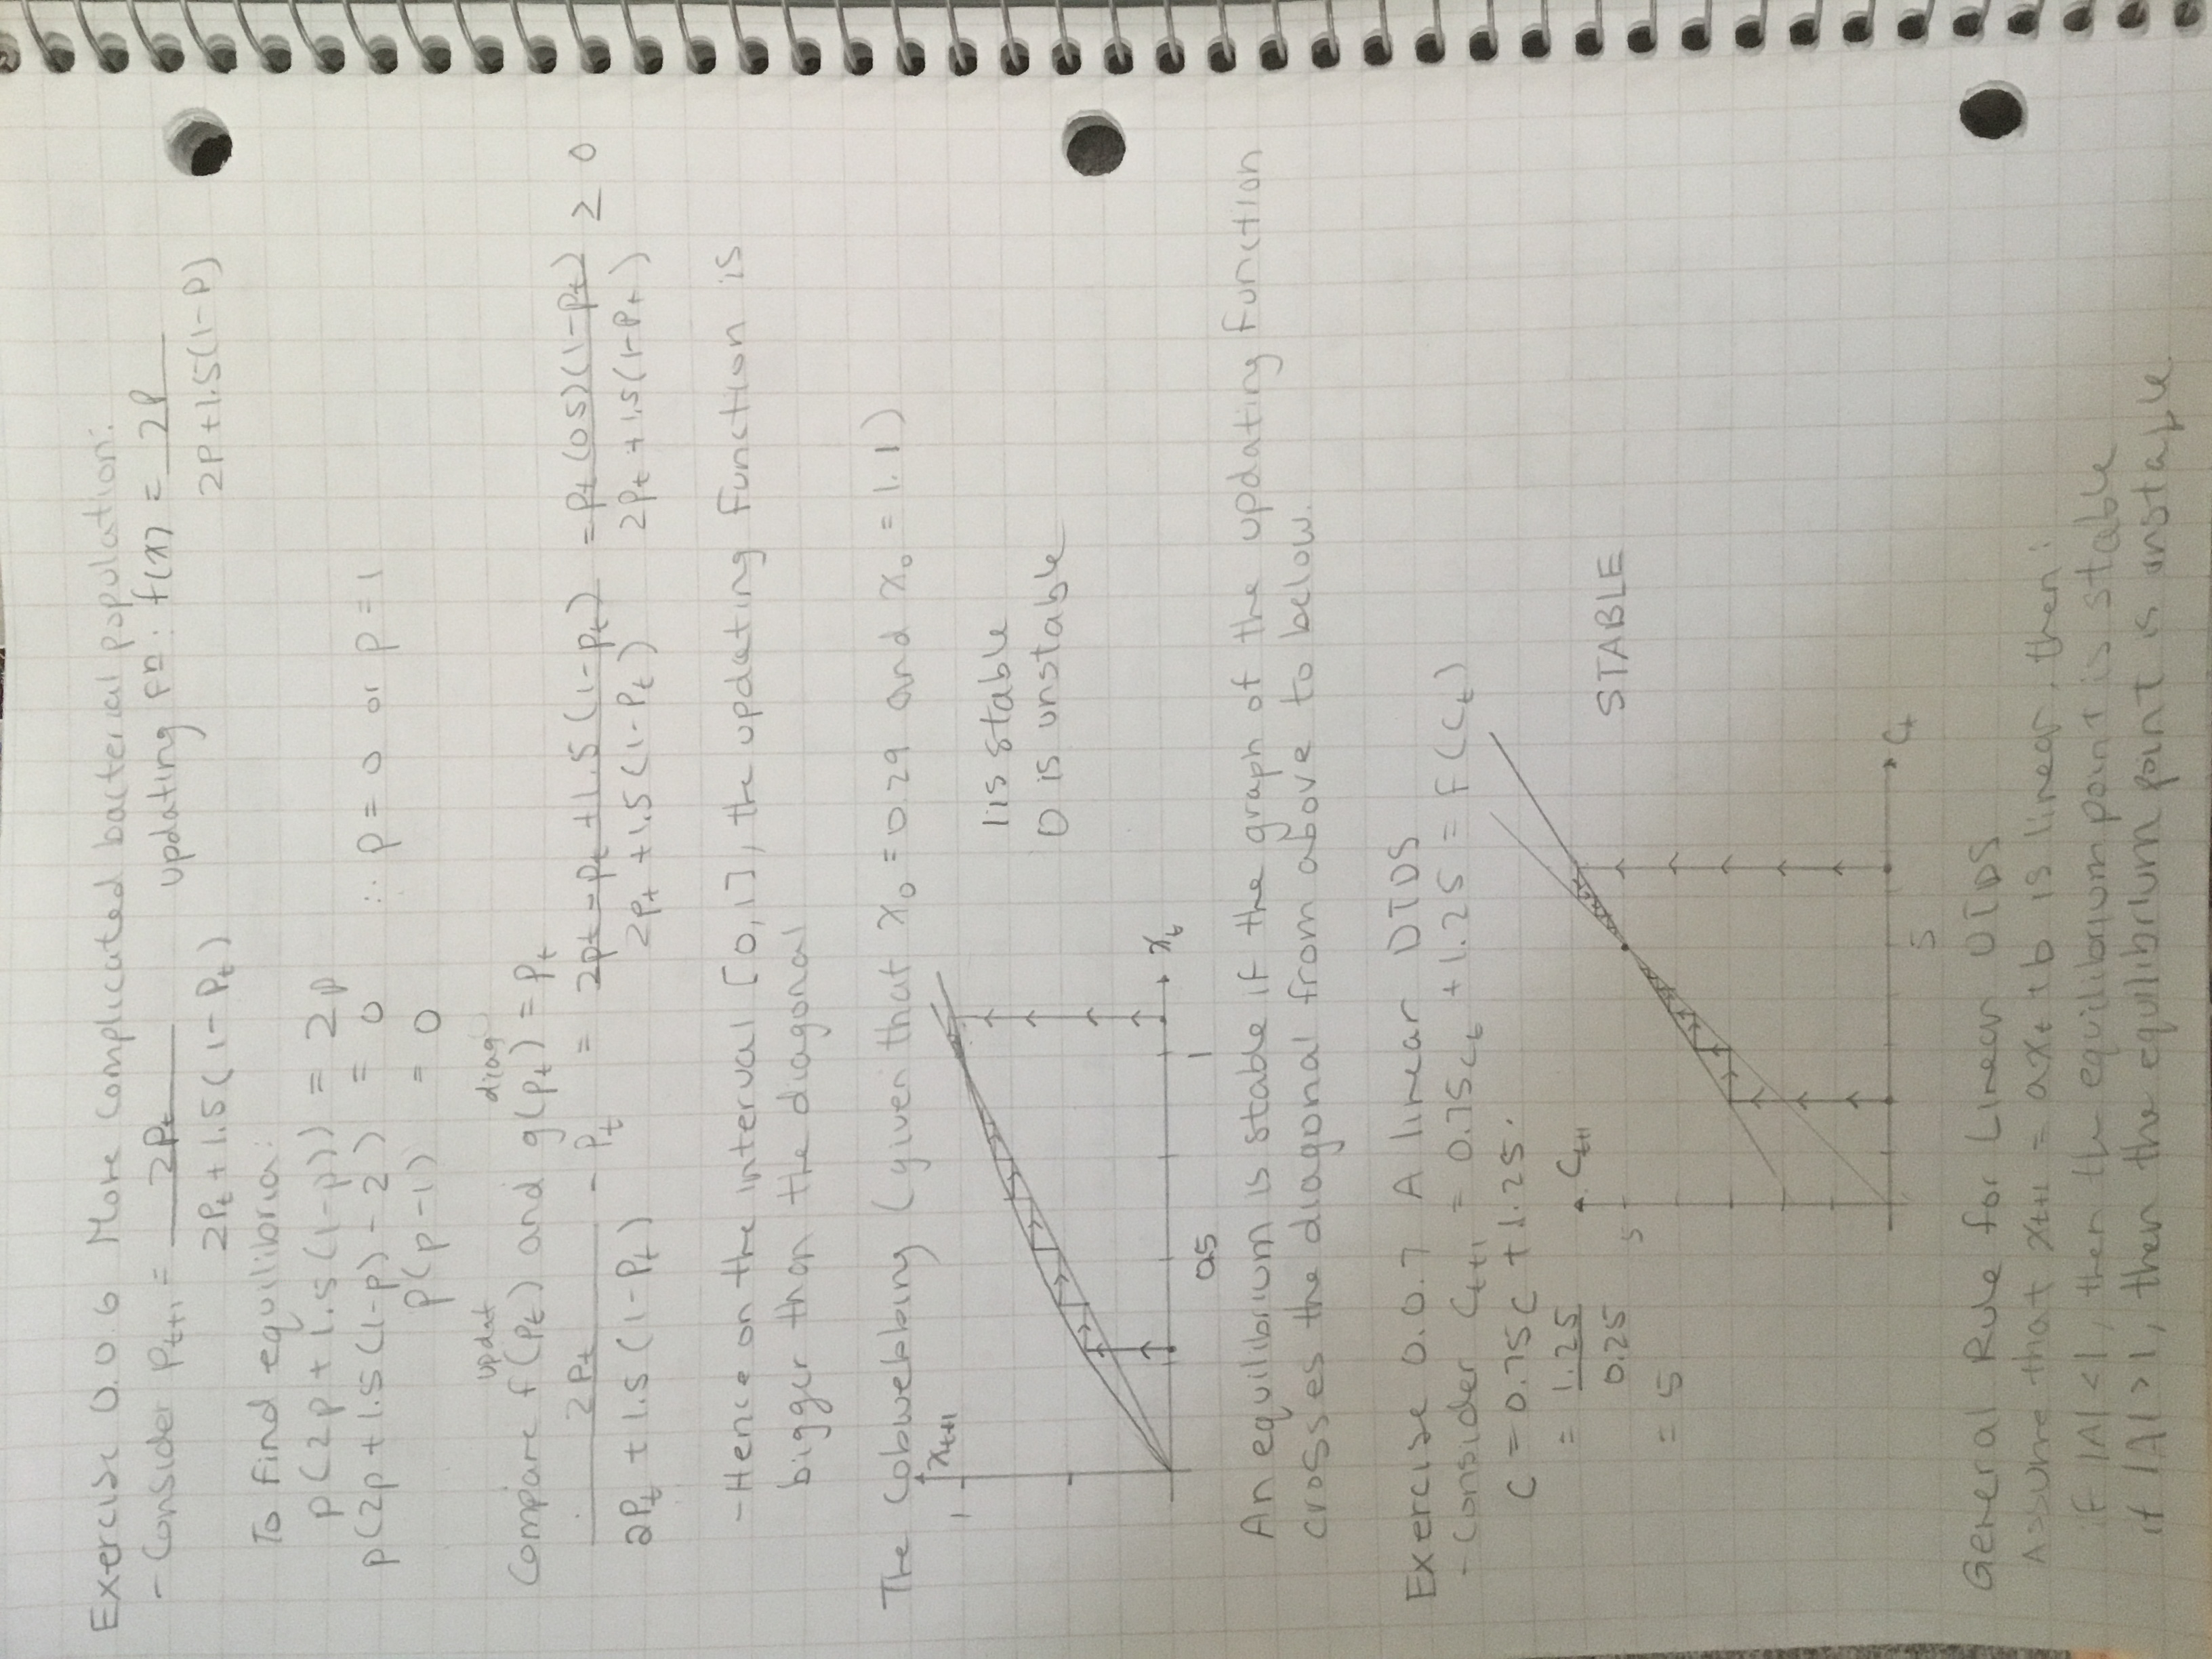 Exercise 0.0.6 More complicated bacterial population:
- Consider Pt+1 = 2Pt / 2Pt + 1.5(1-Pt) updating fn: f(x) = 2P / 2P+1.5(1-P)
To find equilibria:
P(2P + 1.5(1-P)) = 2P
P(2P + 1.5(1-P) - 2) = 0 ∴ P = 0 or P = 1
P(P-1) = 0
updat diag
Compare f(Pt) and g(Pt) = Pt
2Pt / 2Pt + 1.5(1-Pt) - Pt = 2Pt - Pt + 1.5(1-Pt) / 2Pt + 1.5(1-Pt) = Pt(0.5)(1-Pt) / 2Pt + 1.5(1-Pt) ≥ 0
- Hence on the interval [0,1], the updating function is
bigger than the diagonal
The cobwebbing (given that x0 = 0.29 and x0 = 1.1)
xt+1
1
1 is stable
0 is unstable
xt
0.5
1
An equilibrium is stable if the graph of the updating function
crosses the diagonal from above to below.
Exercise 0.0.7 A linear DTDS
- Consider Ct+1 = 0.75Ct + 1.25 = f(Ct)
C = 0.75C + 1.25.
= 1.25 / 0.25
= 5
Ct+1
5
STABLE
Ct
5
General Rule for Linear DTDS
Assume that xt+1 = axt + b is linear, then:
if |A| < 1, then the equilibrium point is stable
if |A| > 1, then the equilibrium point is unstable